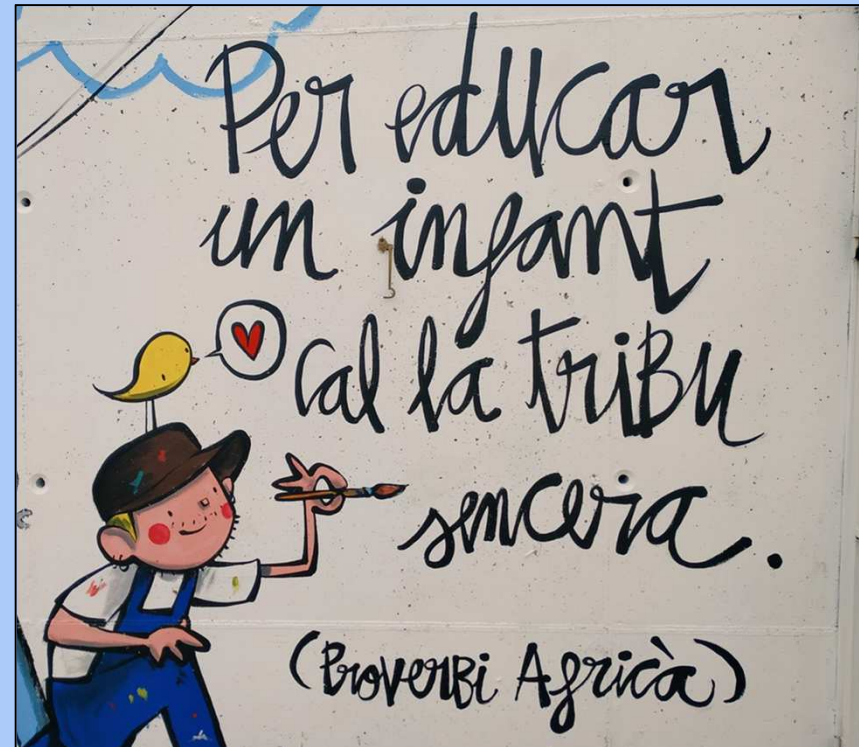 Per educar
un infant
cal la triBu
sencera.
(ProverBi Africà)